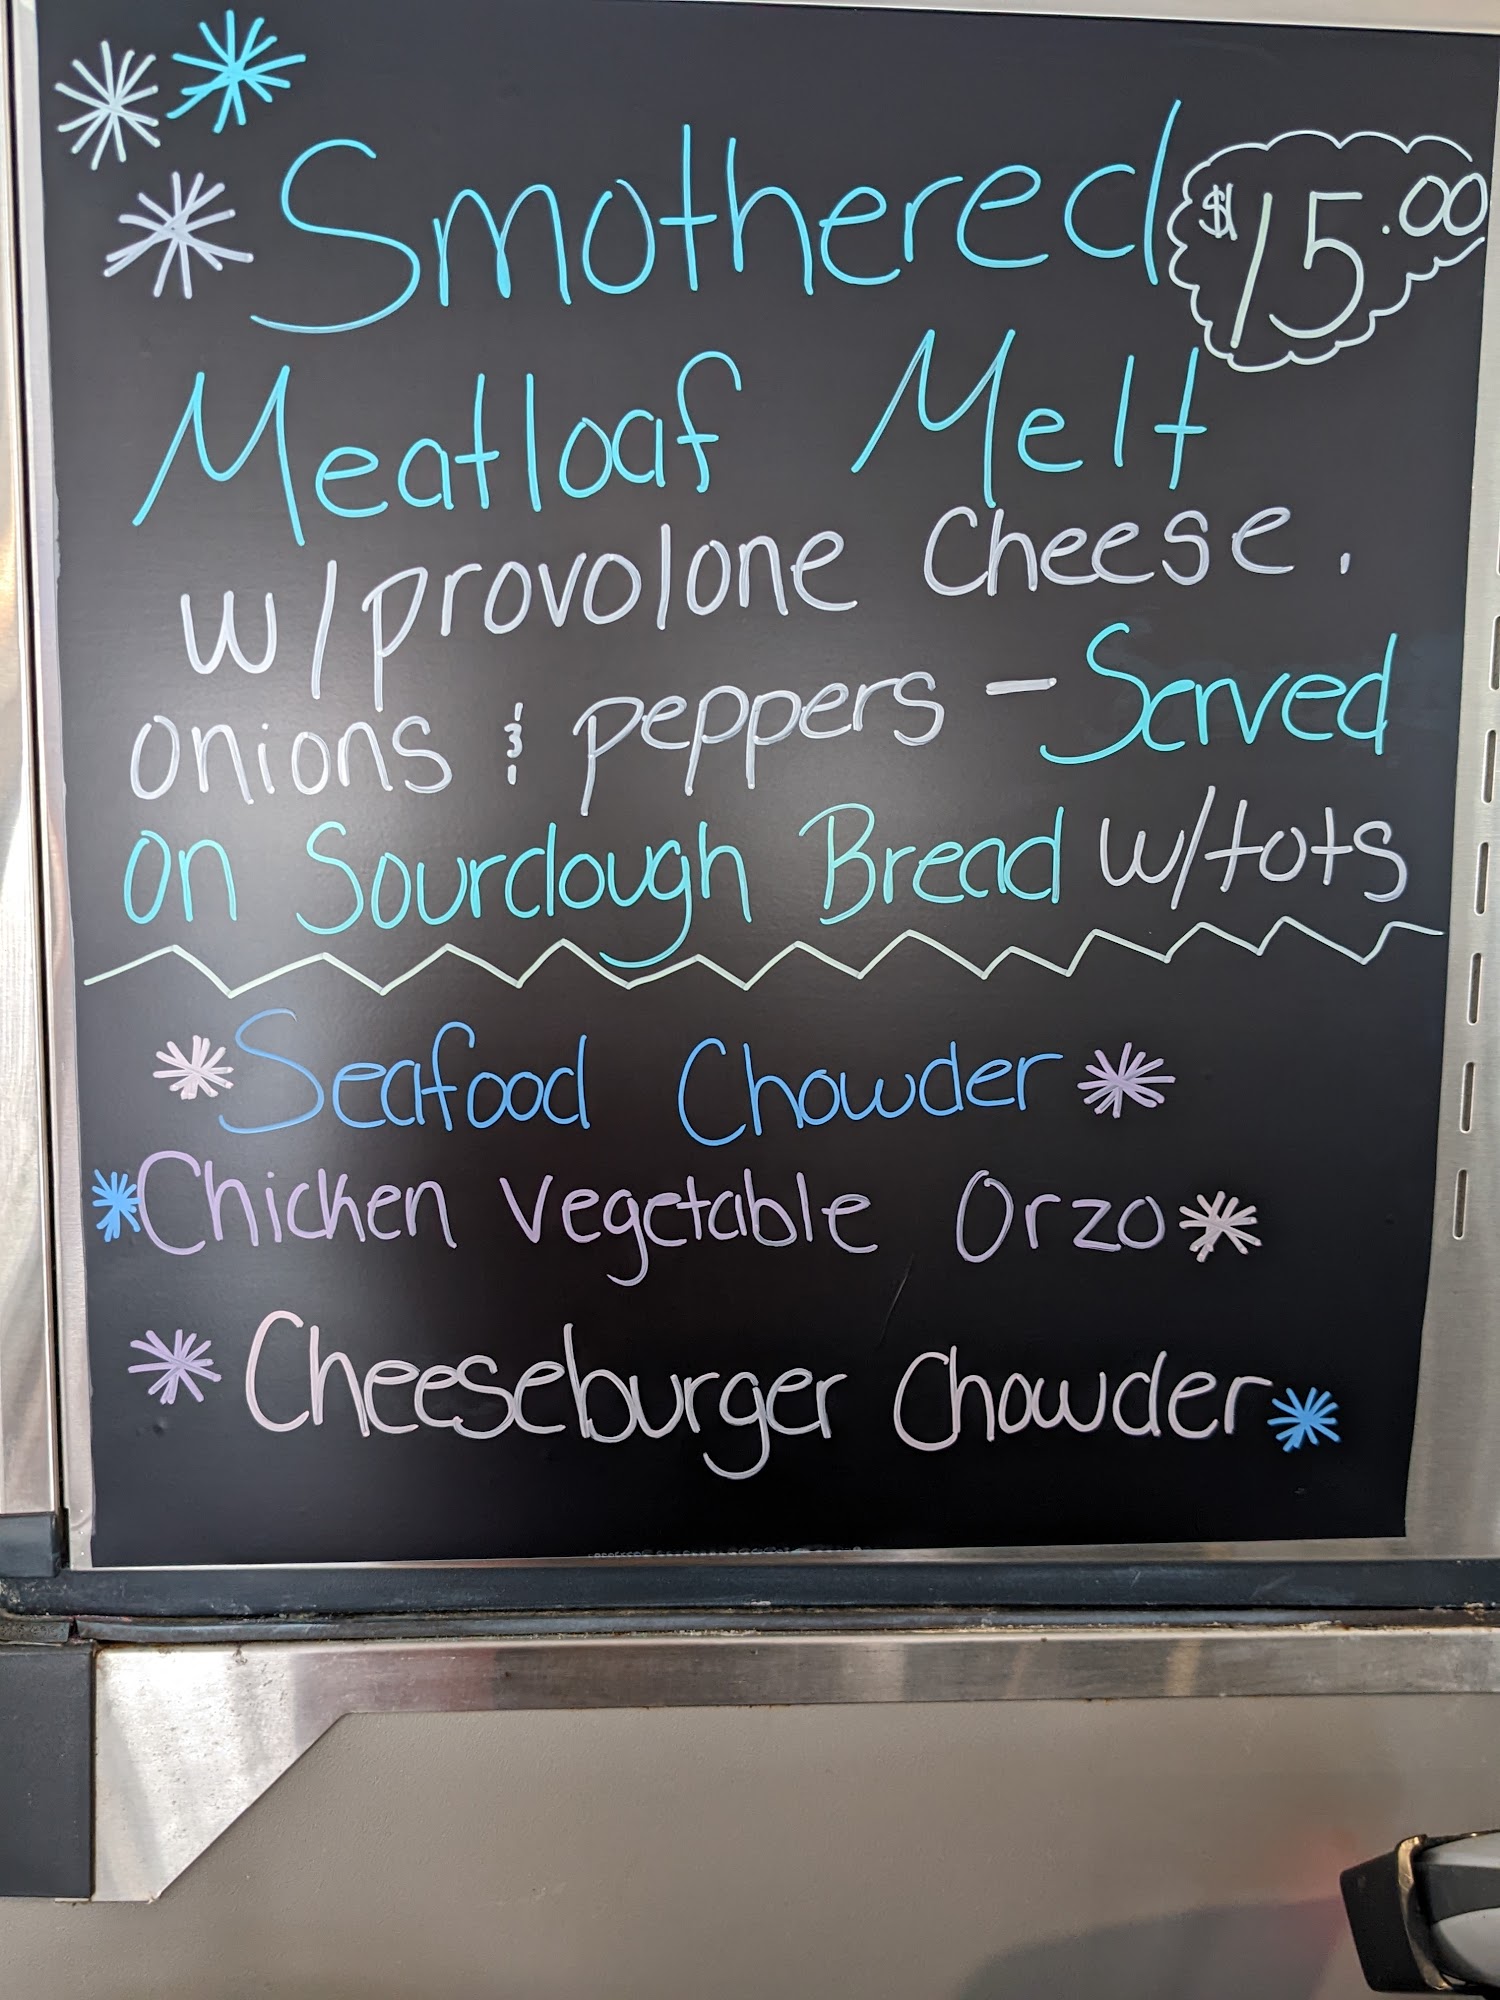 Smothered $15.00
Meatloaf Melt
w/provolone Cheese.
onions & peppers - Served
on Sourdough Bread w/tots
Seafood Chowder
Chicken Vegetable Orzo
Cheeseburger Chowder